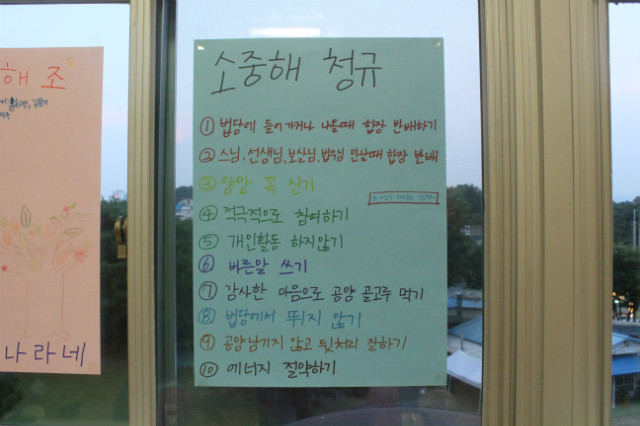 해 조
소중해 청규
① 법당에 들어가거나 나올때 합장 반배하기
② 스님, 선생님, 보살님, 법우님 만날때 합장 반배
③ 양말 꼭 신기
④ 적극적으로 참여하기
⑤ 개인활동 하지않기
⑥ 바른말 쓰기
⑦ 감사한 마음으로 공양 골고루 먹기
⑧ 법당에서 뛰지 않기
⑨ 공양남기지 않고 뒷처리 잘하기
⑩ 에너지 절약하기
나라네